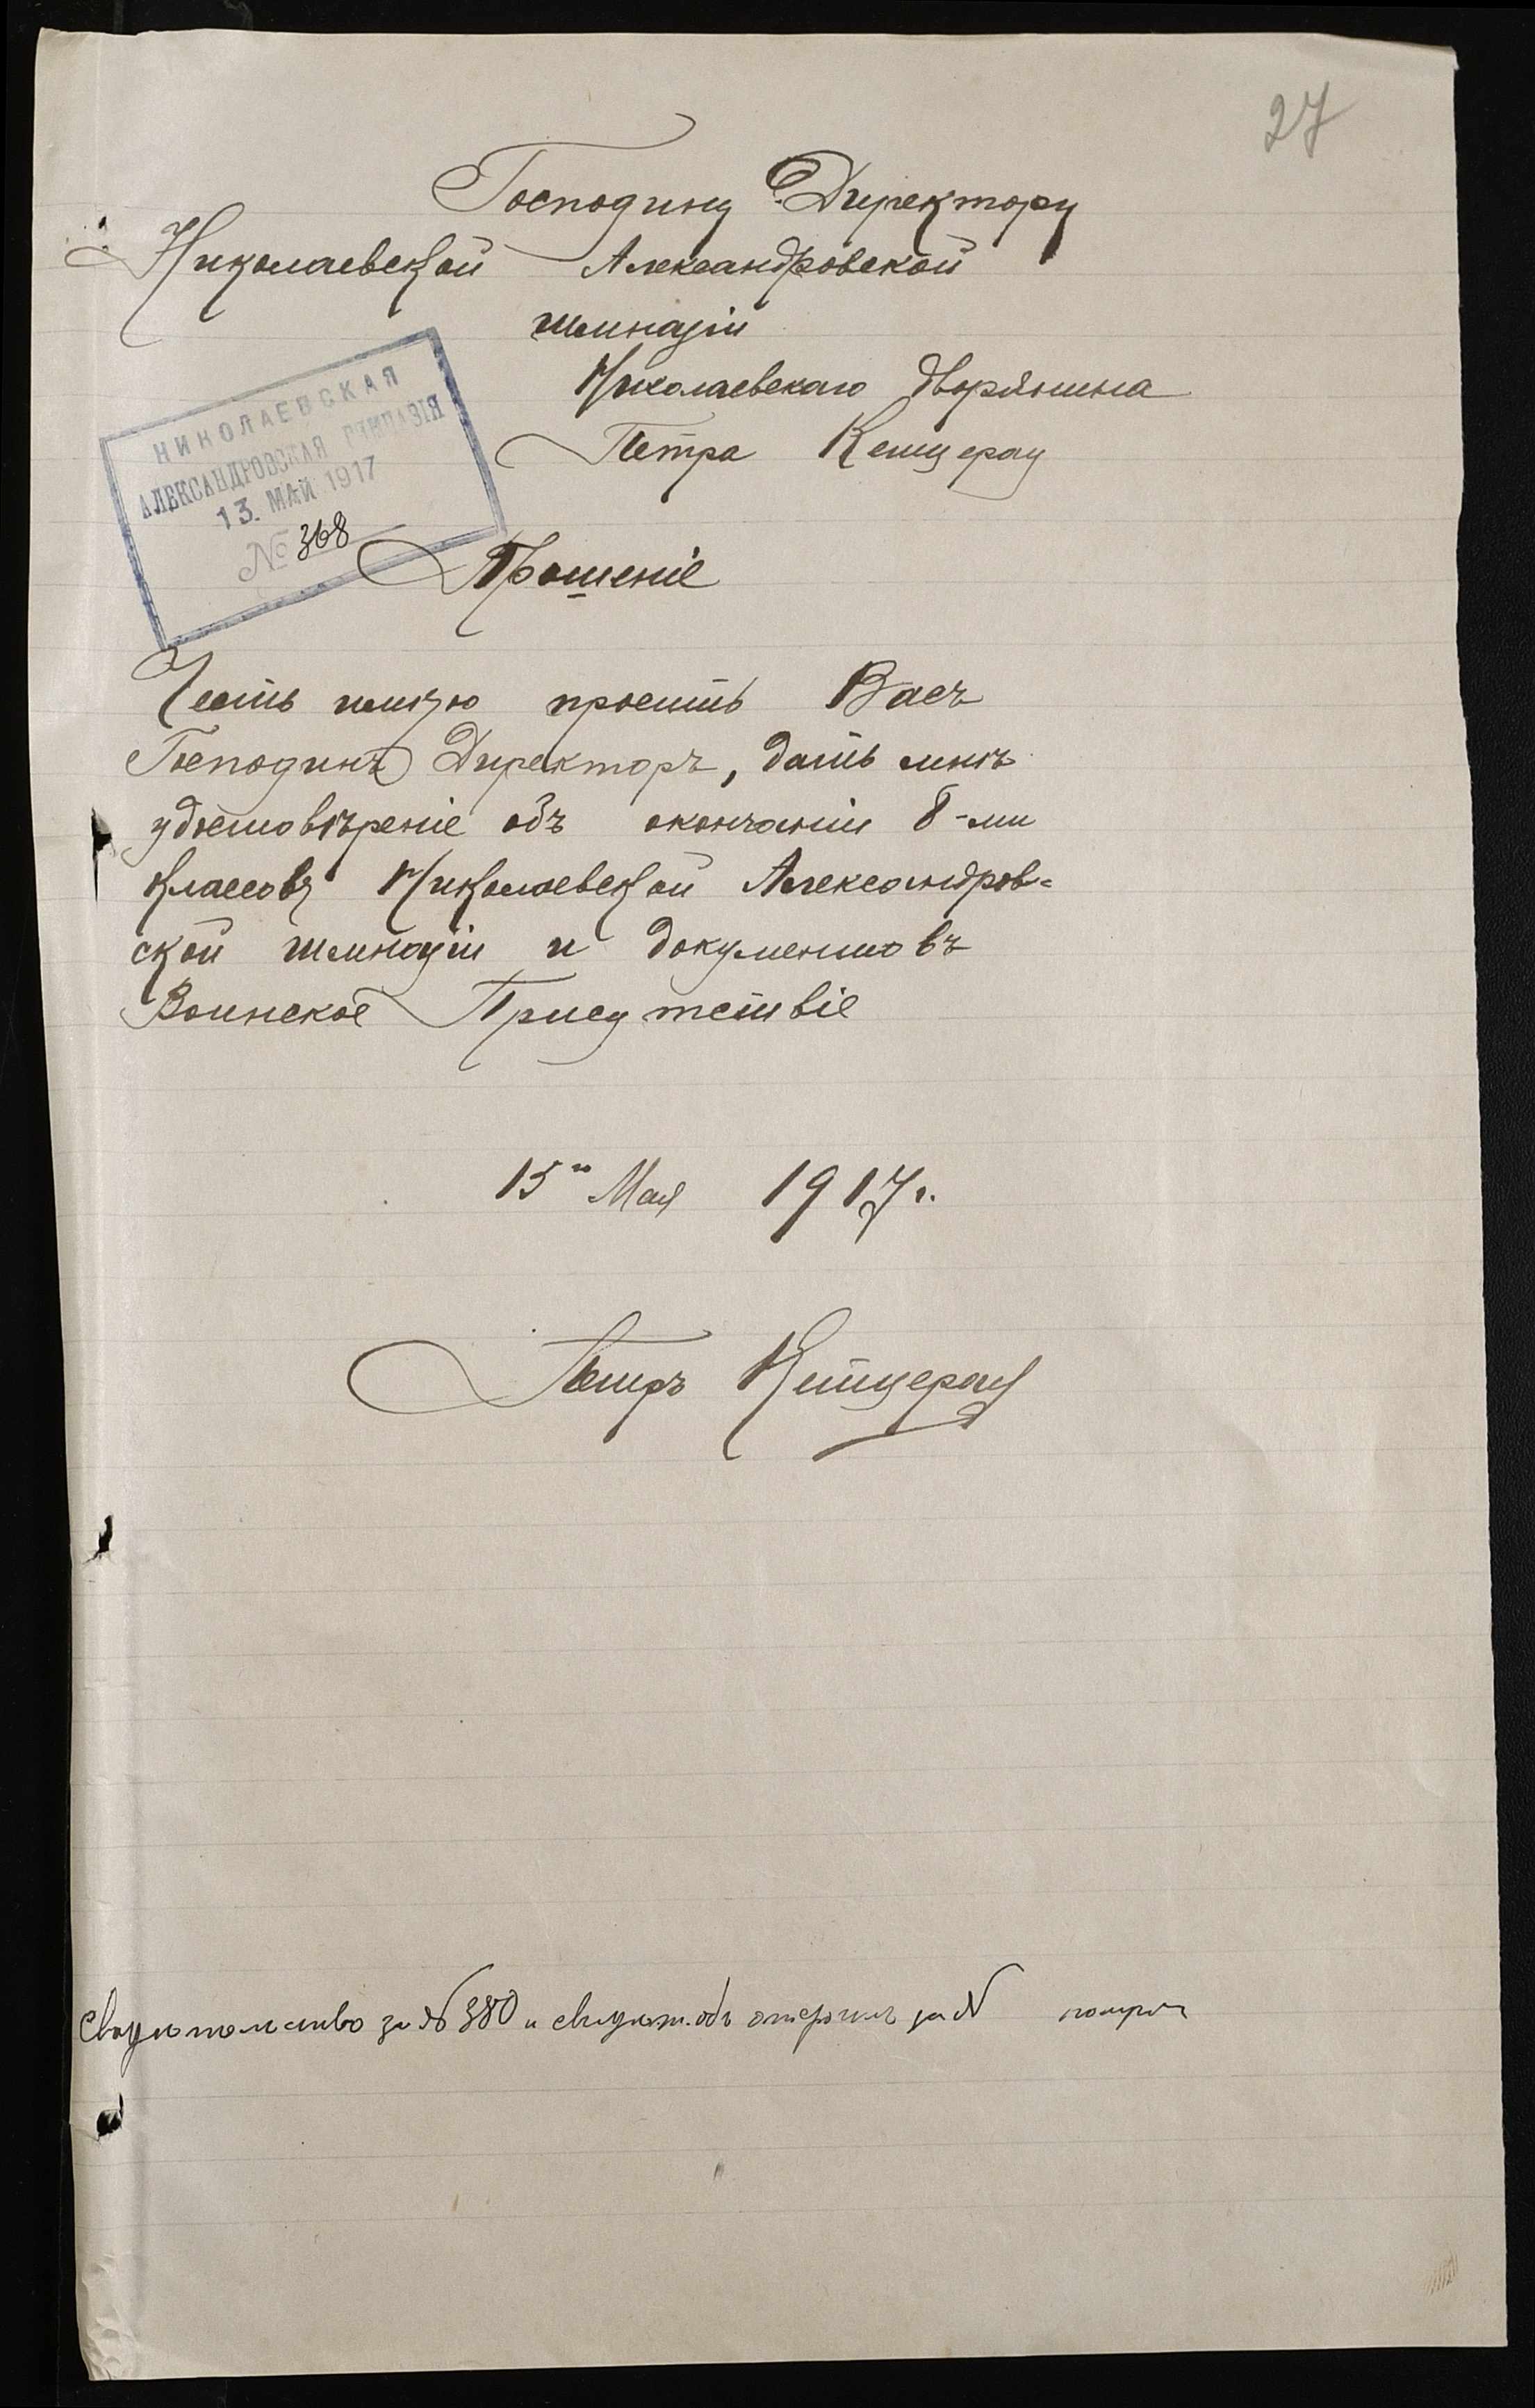 27
Господину Директору
Николаевской Александровской
гимназіи
Николаевскаго дворянина
Петра Кетцерау
НИКОЛАЕВСКАЯ
АЛЕКСАНДРОВСКАЯ ГИМНАЗІЯ
13. МАЙ 1917
№ 368
Прошеніе
Честь имѣю просить Васъ
Господинъ Директоръ, дать мнѣ
удостовѣреніе объ окончаніи 8-ми
классовъ Николаевской Александров=
ской гимназіи и документовъ
Воинское Присутствіе
15го Мая 1917 г.
Петръ Кетцерау
Свидѣтельство за № 380 и свидѣт. объ за №